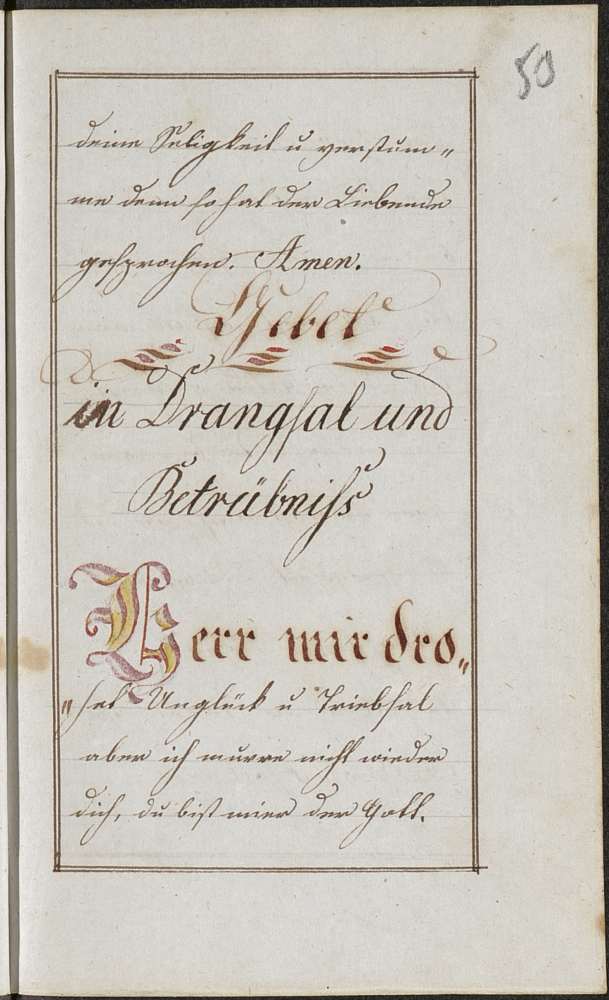 50
deine Seligkeit u verstum„
me denn so hat der Liebende
gesprochen. Amen.
Gebet
in Drangsal und
Betrübniss
Herr mir dro„
„het Unglück u Triebsal
aber ich murre nicht wieder
dich, du bist mier der Gott.